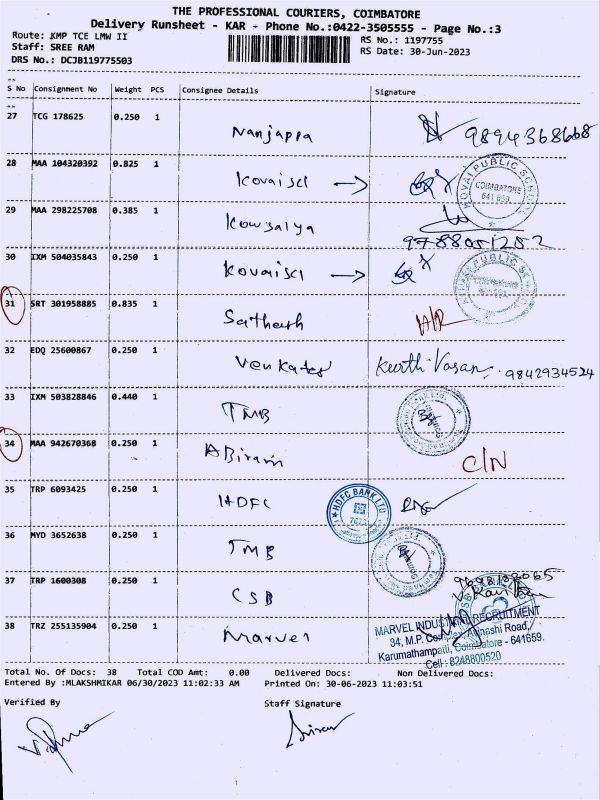 THE PROFESSIONAL COURIERS, COIMBATORE
Delivery Runsheet - KAR - Phone No.:0422-3505555 - Page No.:3
Route: KMP TCE LMW II
RS No.: 1197755
Staff: SREE RAM
RS Date: 30-Jun-2023
DRS No.: DCJB119775503
S No Consignment No Weight PCS Consignee Details Signature
27 TCG 178625 0.250 1 Nanjappa 9894368668
28 MAA 104320392 0.825 1 Kovaiscl → KOVAI PUBLIC SCHOOL COIMBATORE 641 659
29 MAA 298225708 0.385 1 Kowsalya 9788051252
30 IXM 504035843 0.250 1 Kovaiscl → PUBLIC
31 SRT 301958885 0.835 1 Sathesh
32 EDQ 25600867 0.250 1 Venkates Keerthi Vasan. 9842934524
33 IXM 503828846 0.440 1 TMB
34 MAA 942670368 0.250 1 ABiram C/N
35 TRP 6093425 0.250 1 HDFC HDFC BANK LTD
36 MYD 3652638 0.250 1 TMB
37 TRP 1600308 0.250 1 CSB
38 TRZ 255135904 0.250 1 Marvel
MARVEL INDUSTRIAL RECRUITMENT
34, M.P. Complex, Avinashi Road,
Karumathampatti, Coimbatore - 641659.
Cell : 8248800520
Total No. Of Docs: 38 Total COD Amt: 0.00 Delivered Docs: Non Delivered Docs:
Entered By :MLAKSHMIKAR 06/30/2023 11:02:33 AM Printed On: 30-06-2023 11:03:51
Verified By Staff Signature
1